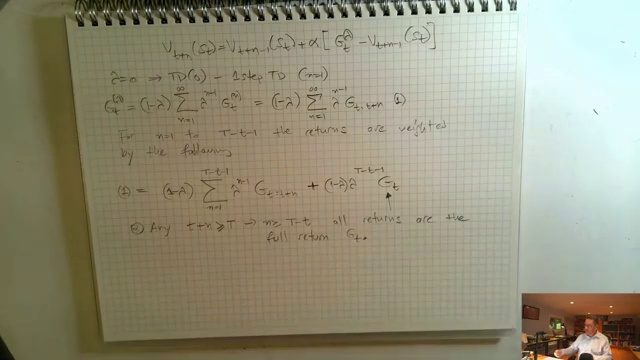 V_{t+n}(S_t) = V_{t+n-1}(S_t) + α[G_t^λ - V_{t+n-1}(S_t)]
λ=0 ⇒ TD(0) - 1 step TD (n=1)
G_t^{(λ)} = (1-λ) ∑_{n=1}^{∞} λ^{n-1} G_t^{(n)} = (1-λ) ∑_{n=1}^{∞} λ^{n-1} G_{t:t+n} (1)
For n=1 to T-t-1 the returns are weighted
by the following
(1) = (1-λ) ∑_{n=1}^{T-t-1} λ^{n-1} G_{t:t+n} + (1-λ) λ^{T-t-1} G_t
Any t+n ≥ T → n ≥ T-t all returns are the
full return G_t.